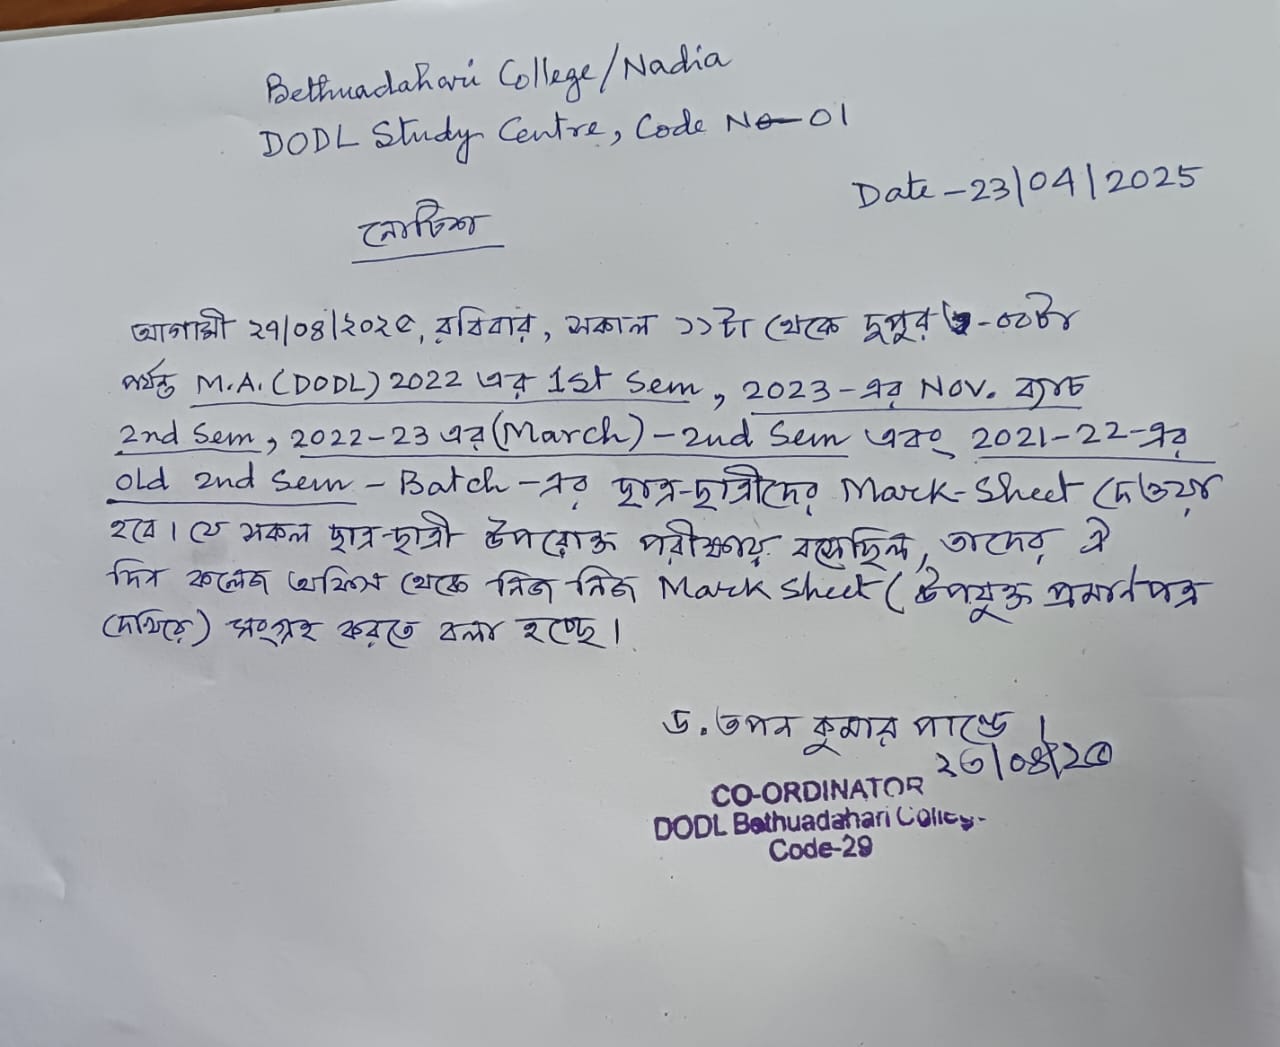 Bethuadahari College/Nadia
DODL Study Centre, Code No-01
Date-23/04/2025
নোটিশ
আগামী ২৭/০৪/২০২৫, রবিবার, সকাল ১১টা থেকে দুপুর -০০টা
পর্যন্ত M.A.(DODL) 2022 এর 1st Sem, 2023-এর Nov. ব্যাচ
2nd Sem, 2022-23 এর (March)-2nd Sem এবং 2021-22-এর
old 2nd Sem - Batch-এর ছাত্র-ছাত্রীদের Mark-Sheet দেওয়া
হবে। যে সকল ছাত্র-ছাত্রী উপরোক্ত পরীক্ষায় বসেছিল, তাদের ঐ
দিন কলেজ অফিস থেকে নিজ নিজ Mark Sheet (উপযুক্ত প্রমাণপত্র
দেখিয়ে) সংগ্রহ করতে বলা হচ্ছে।
ড. তপন কুমার পান্ডে।
২৩/০৪/২৫
CO-ORDINATOR
DODL Bethuadahari College
Code-29